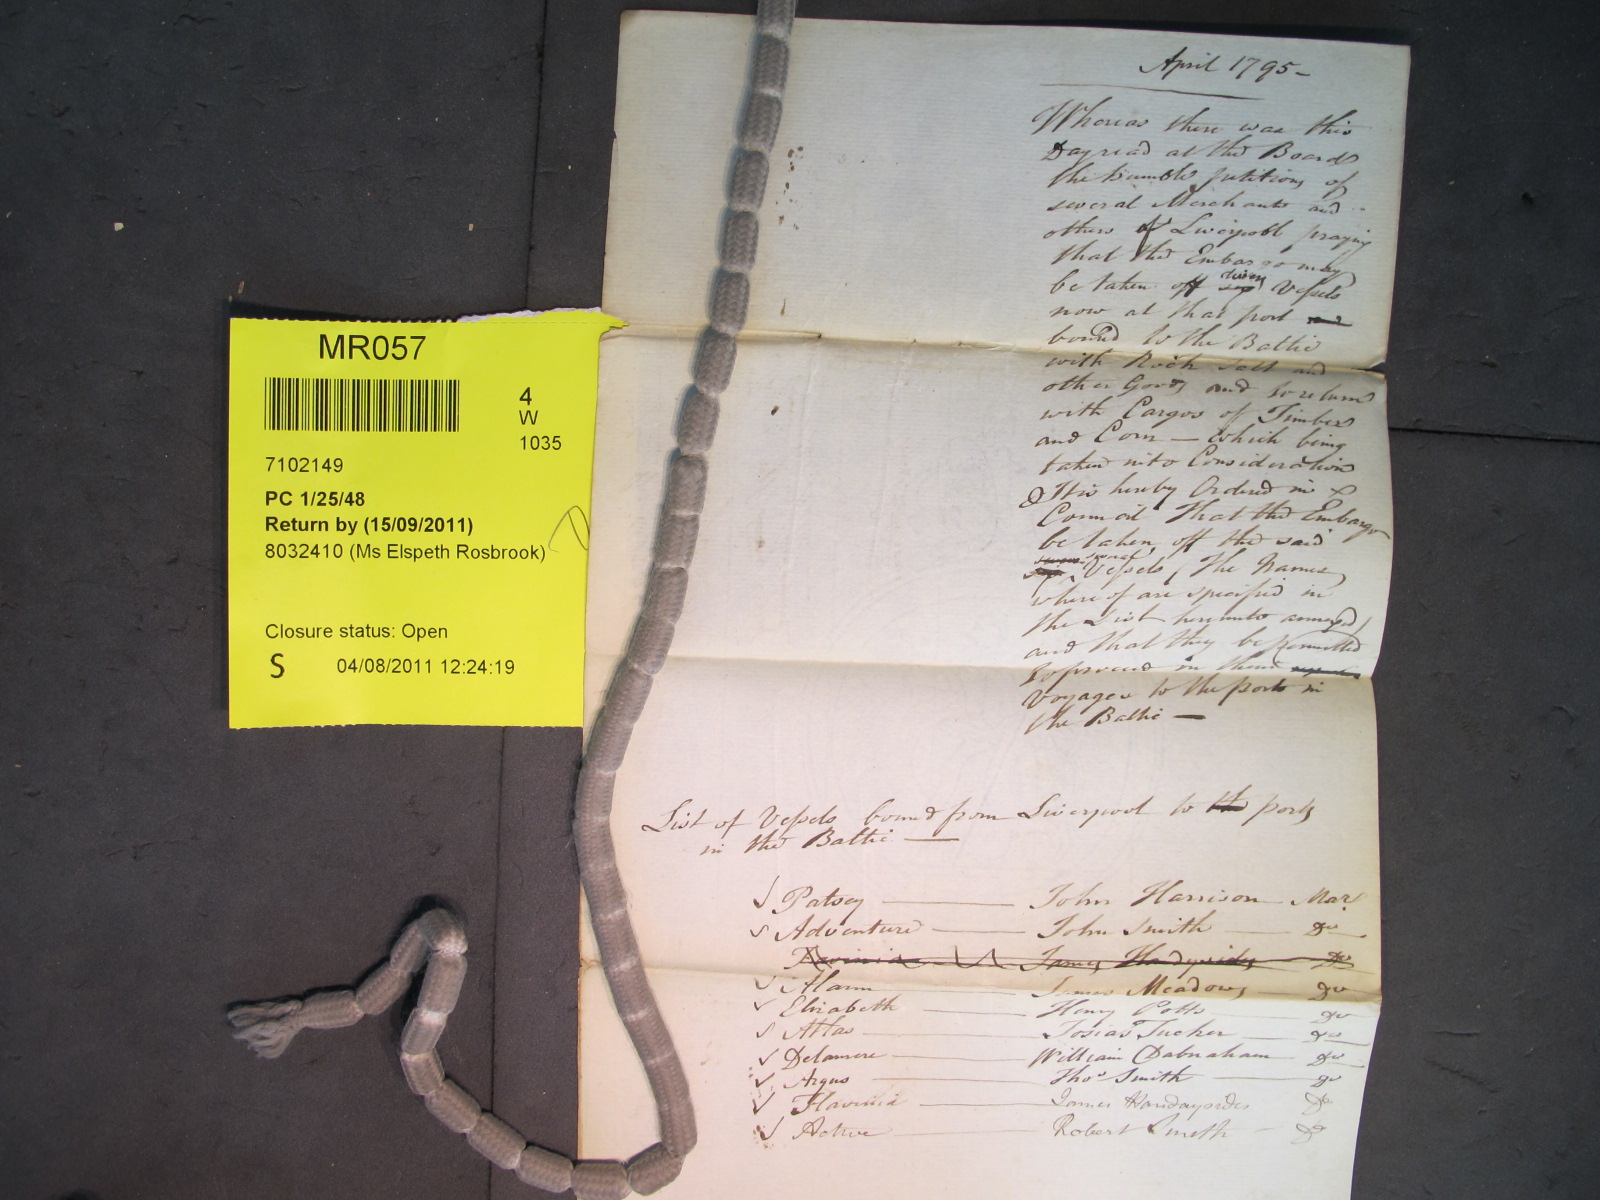 MR057
4
W
1035
7102149
PC 1/25/48
Return by (15/09/2011)
8032410 (Ms Elspeth Rosbrook)
Closure status: Open
S 04/08/2011 12:24:19
April 1795-
Whereas there was this
Day read at the Board
the humble petitions of
several Merchants and
others of Liverpool praying
that the Embargo may
be taken off Vessels
now at that port and
bound to the Baltic
with Rock Salt and
other Goods and to return
with Cargos of Timber
and Corn — Which being
taken into Consideration
It is hereby Ordered in
Council That the Embargo
be taken off the said
several
Vessels, The Names
whereof are specified in
the List hereunto annexed,
and that they be permitted
to proceed in their
Voyages to the ports in
the Baltic —
List of Vessels bound from Liverpool to the ports
in the Baltic —
Patsey — John Harrison — Mar.
Adventure — John Smith — Do
James Do
Alarm — James Meadows — Do
Elizabeth — Henry Potts — Do
Atlas — Josias Tucker — Do
Delamere — William Dabraham — Do
Argus — Thos Smith — Do
Flavinia — James Handaysides Do
Active — Robert Smith — Do